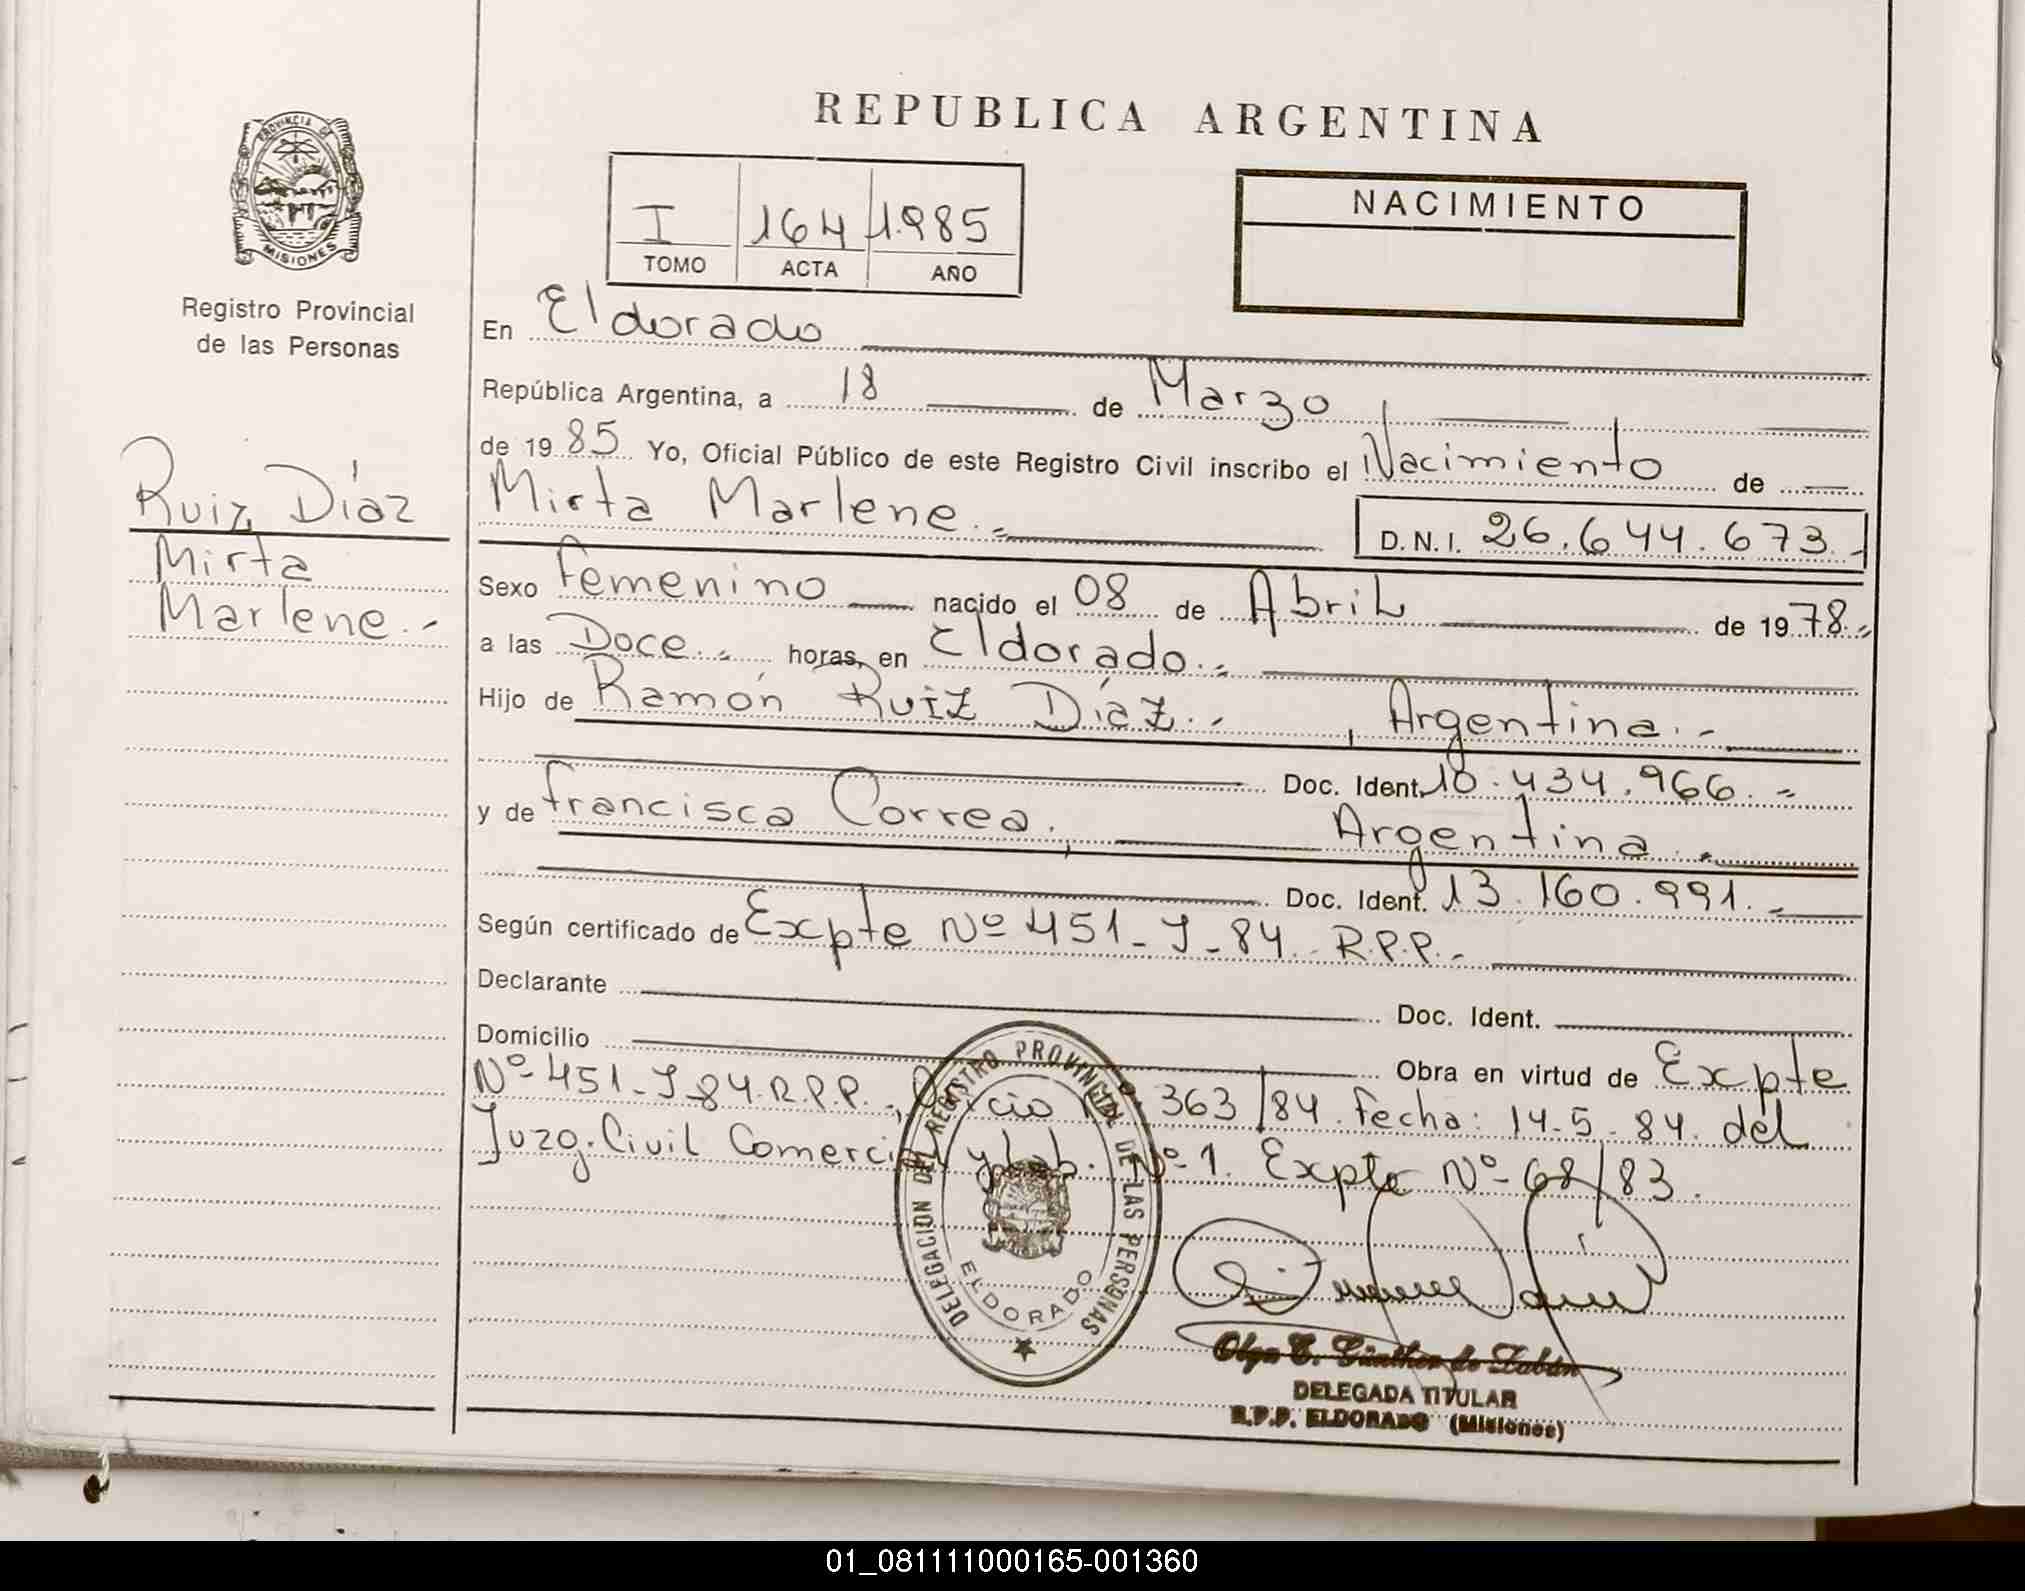 REPUBLICA ARGENTINA
PROVINCIA DE
MISIONES
Registro Provincial
de las Personas
I 164 1.985
TOMO ACTA AÑO
NACIMIENTO
En Eldorado
República Argentina, a 18 de Marzo
de 1985 Yo, Oficial Público de este Registro Civil inscribo el Nacimiento de
Ruiz Díaz
Mirta
Marlene.-
Mirta Marlene.- D.N.I. 26.644.673.-
Sexo Femenino nacido el 08 de Abril de 1978.-
a las Doce.- horas, en Eldorado.-
Hijo de Ramón Ruiz Díaz.- , Argentina.-
Doc. Ident. 10.434.966.-
y de Francisca Correa. , Argentina.
Doc. Ident. 13.160.991.-
Según certificado de Expte Nº 451-J-84. R.P.P.-
Declarante Doc. Ident.
Domicilio Obra en virtud de Expte
Nº 451-J-84.R.P.P.-, 363/84. Fecha: 14-5-84. del
Juzg. Civil Comercial y Lab. Nº 1. Expte Nº 68/83.
DELEGACION DEL REGISTRO PROVINCIAL DE LAS PERSONAS
ELDORADO
Olga E. Günther de Zabán
DELEGADA TITULAR
R.P.P. ELDORADO (Misiones)
01_081111000165-001360